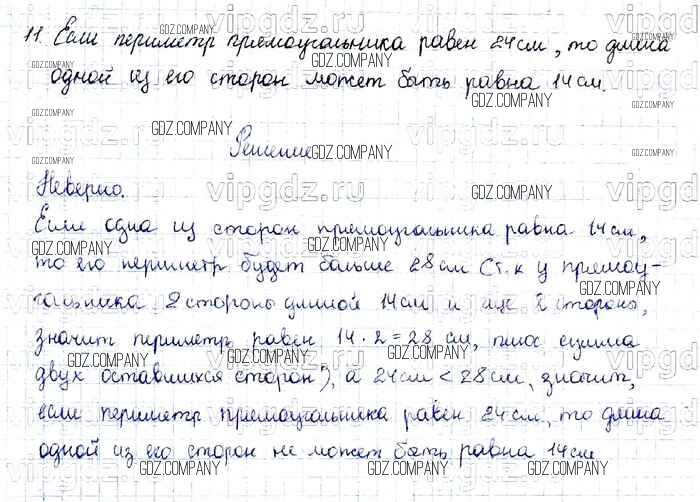 11. Если периметр прямоугольника равен 24 см, то длина
одной из его сторон может быть равна 14 см.
Решение
Неверно.
Если одна из сторон прямоугольника равна 14 см,
то его периметр будет больше 28 см (т.к у прямоу-
гольника 2 стороны длиной 14 см и еще 2 стороны,
значит периметр равен 14 · 2 = 28 см, плюс сумма
двух оставшихся сторон), а 24 см < 28 см, значит,
если периметр прямоугольника равен 24 см, то длина
одной из его сторон не может быть равна 14 см